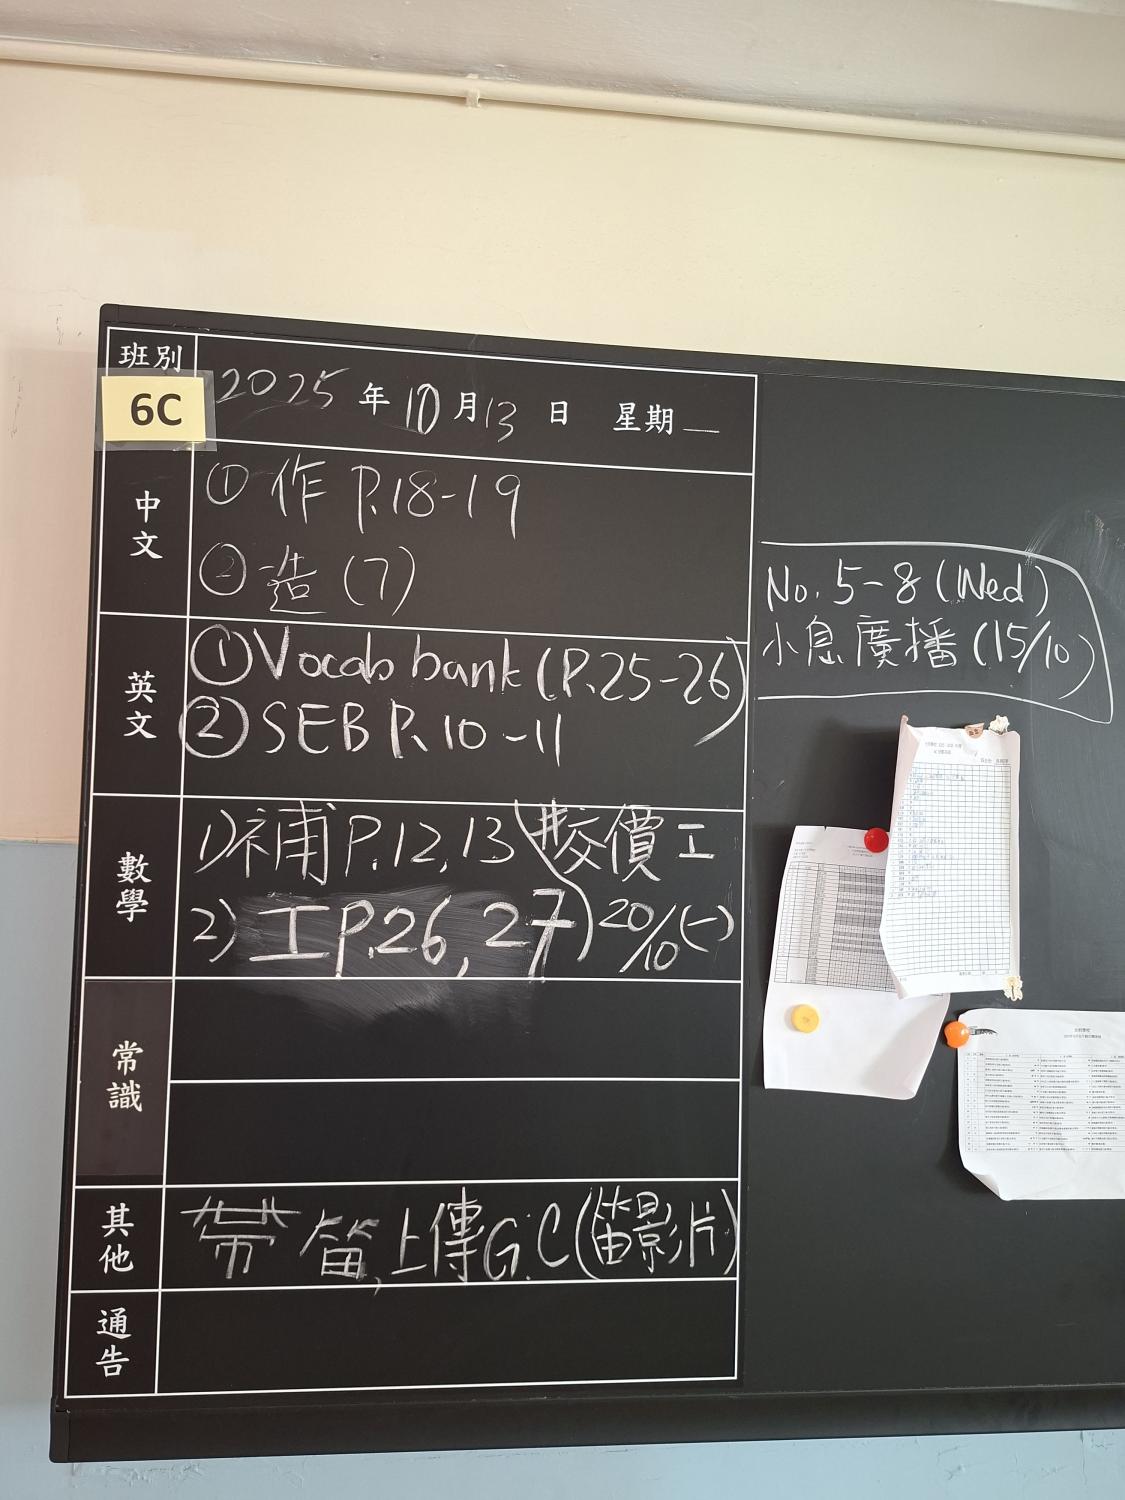 班別
6C
2025年10月13日 星期
中文
① 作 P.18-19
② 造 (7)
英文
① Vocab bank (P.25-26)
② SEB P.10-11
數學
1) 補 P.12, 13
2) 工 P.26, 27
交價工
20/10 (一)
常識
其他
帶笛,上傳G.C(笛影片)
通告
No. 5-8 (Wed)
小息廣播 (15/10)